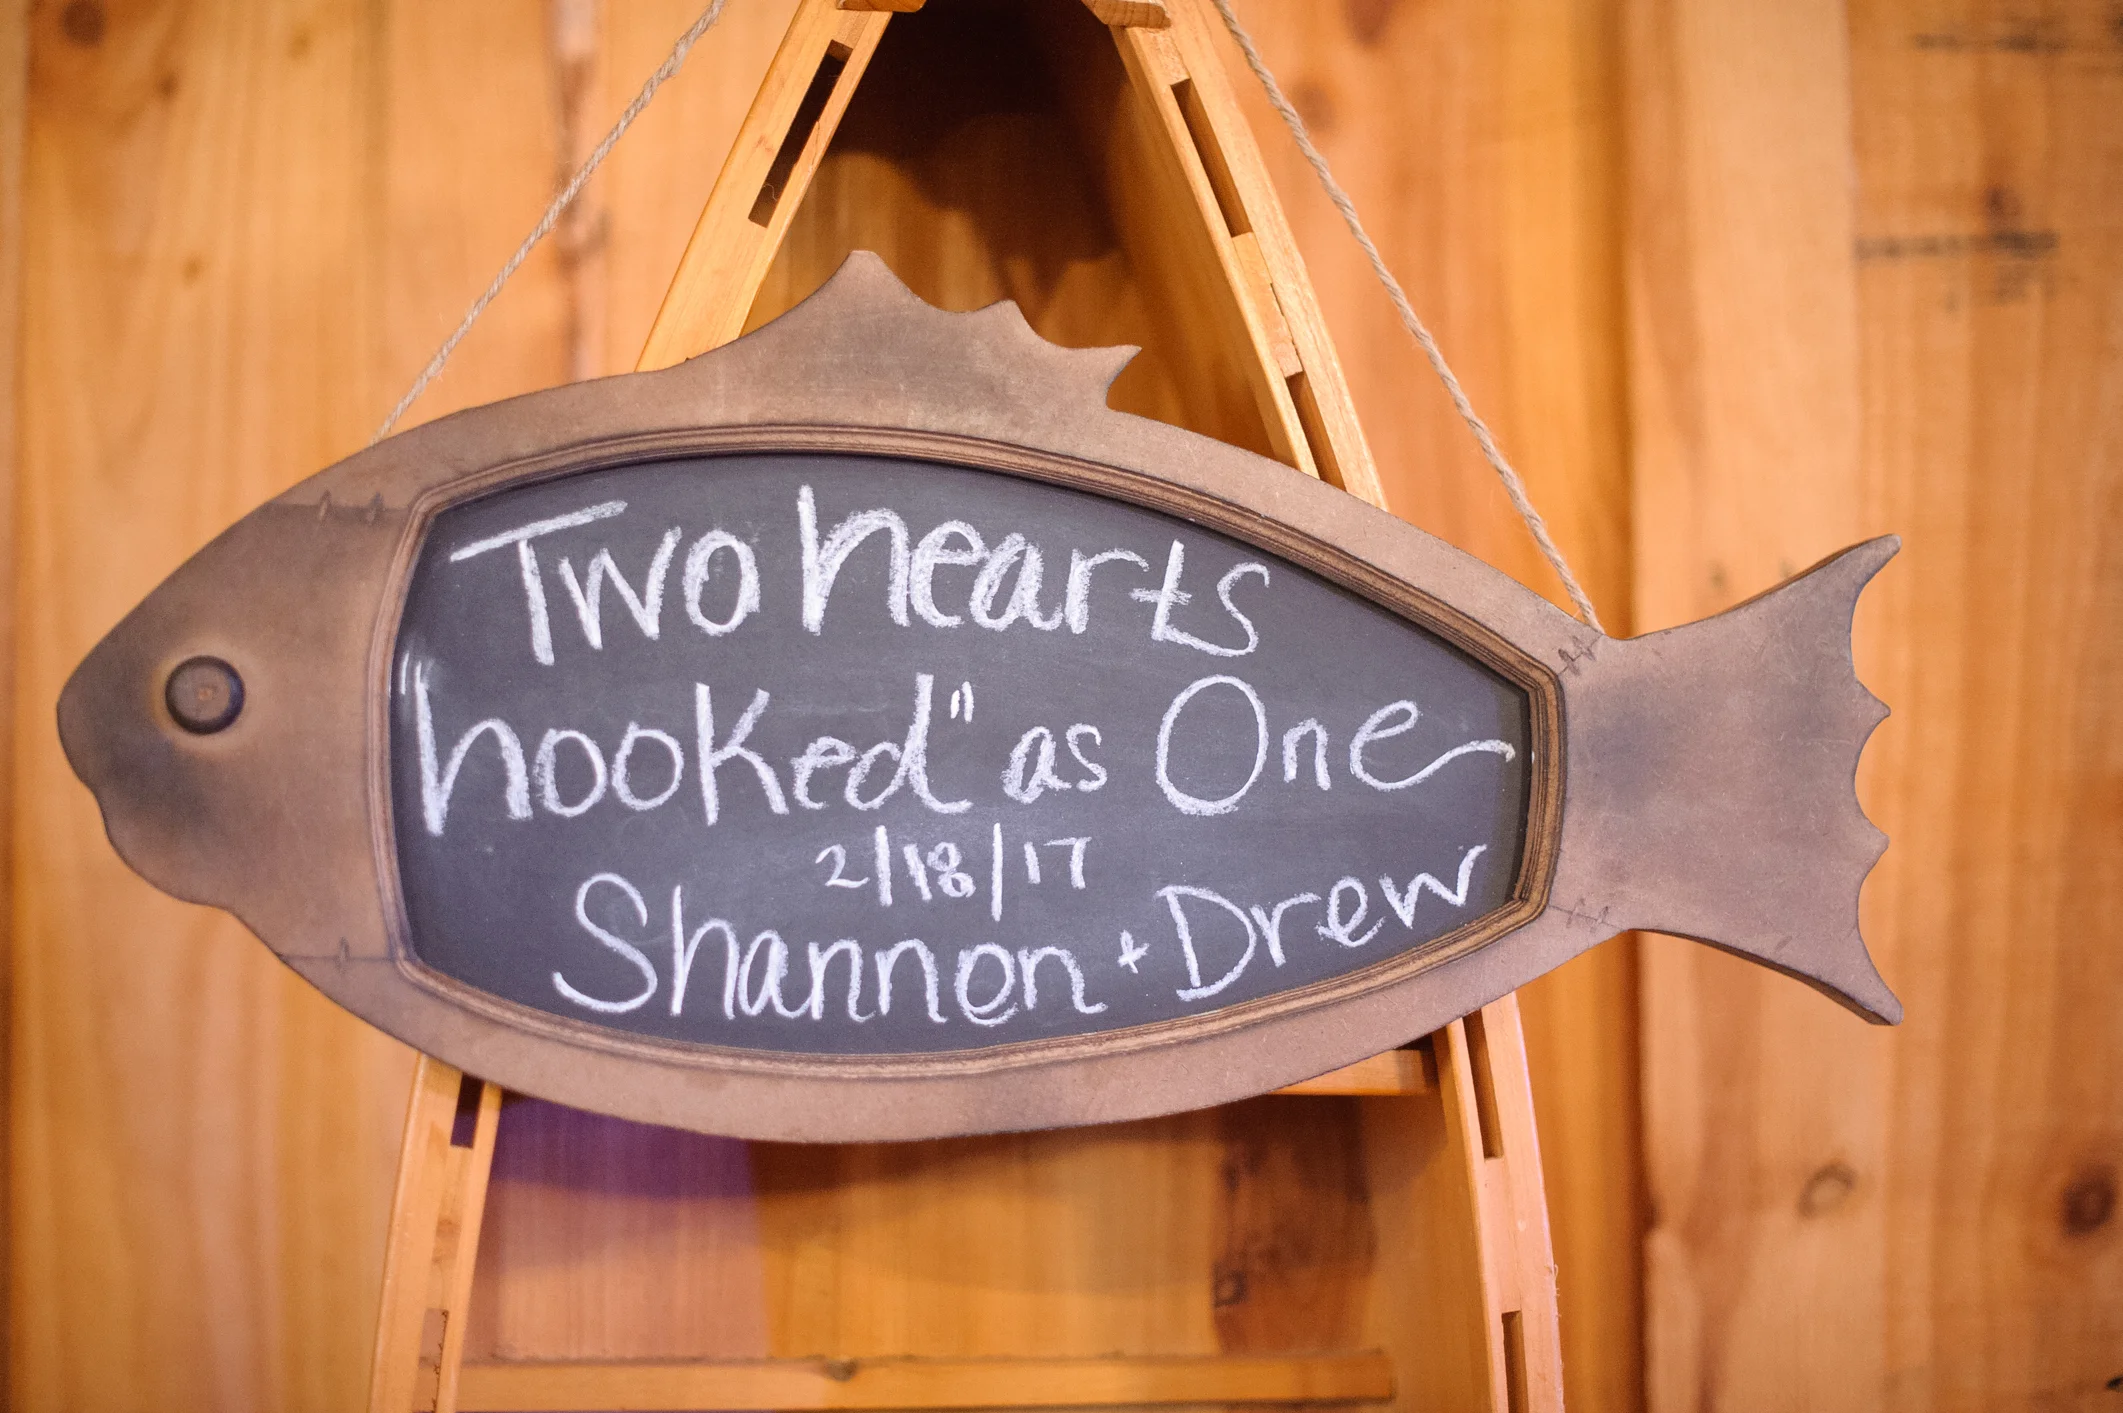 Two hearts
"hooked" as One
2/18/17
Shannon + Drew